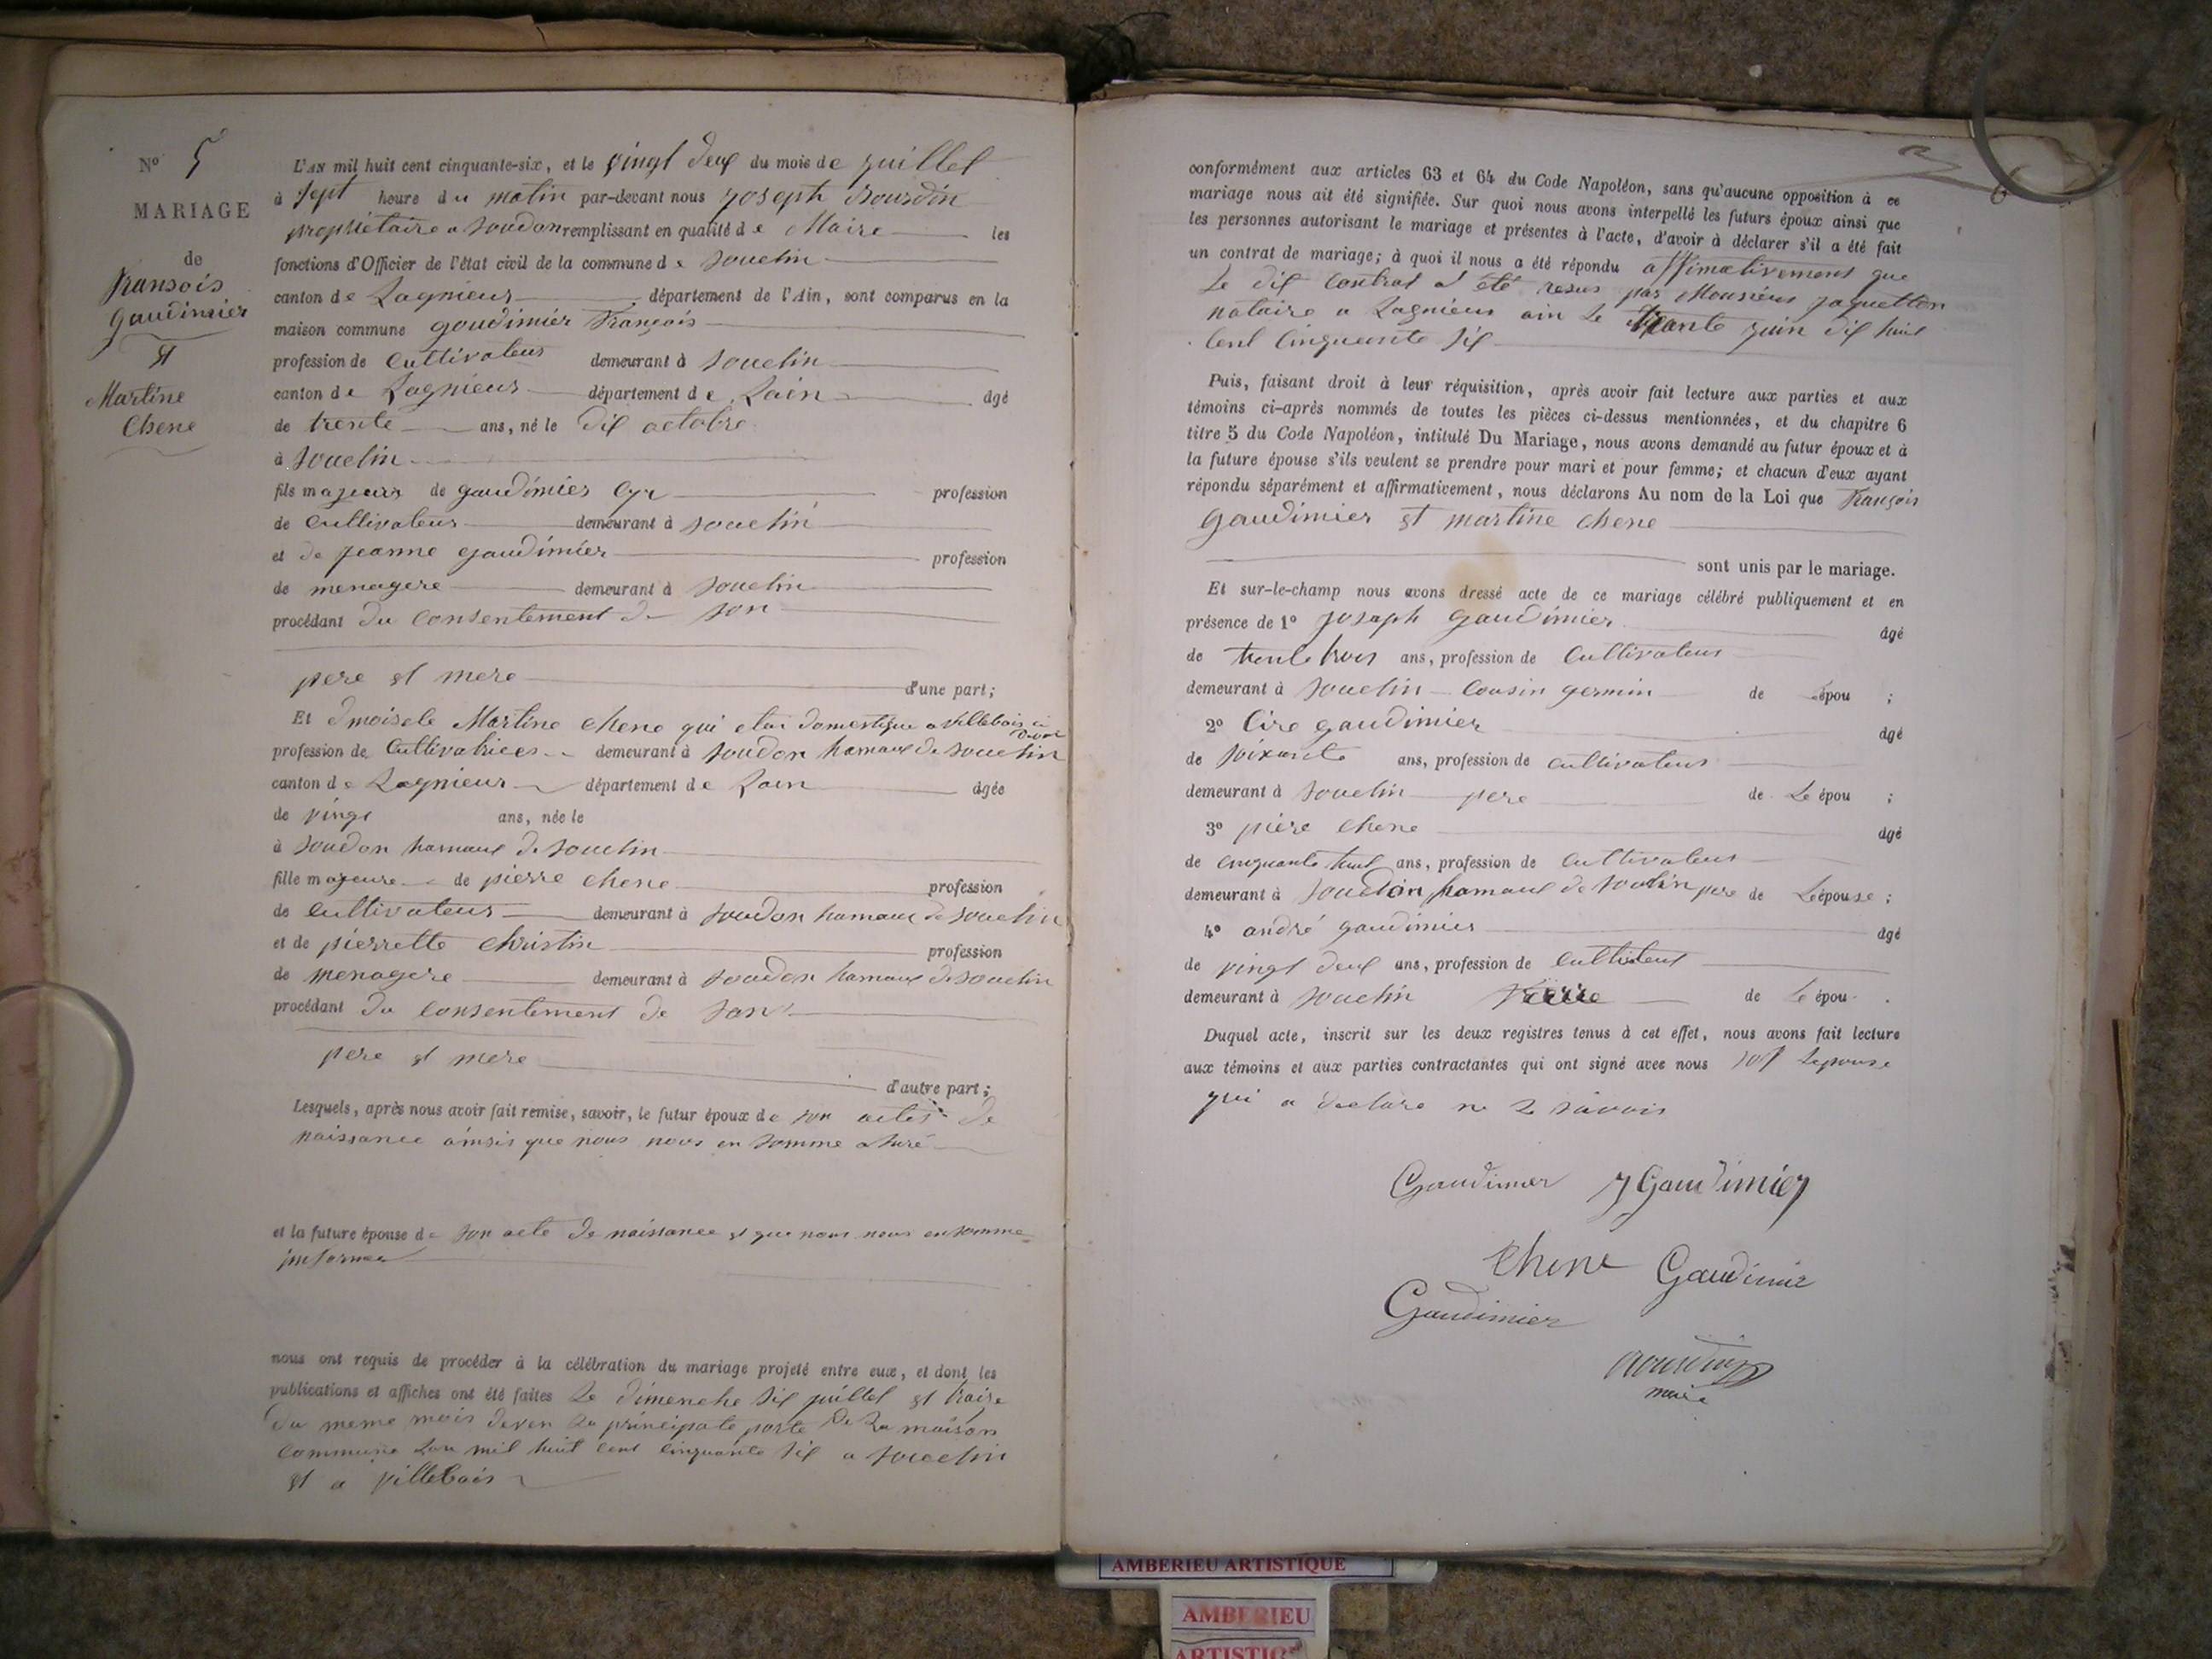 N° 5
MARIAGE
de
fransois
gaudimier
et
Martine
Chene
L'AN mil huit cent cinquante-six, et le vingt deux du mois de juillet
à sept heure du matin par-devant nous joseph Bourdin
propriétaire a soudon remplissant en qualité de Maire les
fonctions d'Officier de l'état civil de la commune de souclin
canton de Lagnieux département de l'Ain, sont comparus en la
maison commune gaudimier François
profession de Cultivateur demeurant à souclin
canton de Lagnieux département de Lain âgé
de trente ans, né le dix octobre
à souclin
fils majeurs de gaudimier Cyr profession
de Cultivateur demeurant à souclin
et de jeanne gaudimier profession
de menagere demeurant à souclin
procédant du consentement de son
pere et mere d'une part;
Et dmoisele Martine chene qui etai domestique a villebois ci devan
profession de Cultivatrices demeurant à soudon hamaux de souclin
canton de Lagnieux département de Lain âgée
de vingt ans, née le
à soudon hamaux de souclin
fille majeure de pierre chene profession
de Cultivateur demeurant à soudon hamaux de souclin
et de pierrette christin profession
de menagere demeurant à soudon hamaux de souclin
procédant du consentement de son
pere et mere d'autre part;
Lesquels, après nous avoir fait remise, savoir, le futur époux de son actes de
naissance ainsis que nous nous en somme asuré
et la future épouse de son acte de naissance et que nous nous en somme
informer
nous ont requis de procéder à la célébration du mariage projeté entre eux, et dont les
publications et affiches ont été faites Le dimenche six juillet et traize
du meme mois deven La principale porte De La maison
commune Lan mil huit cent cinquante six a souclin
et a villebois
6
conformément aux articles 63 et 64 du Code Napoléon, sans qu'aucune opposition à ce
mariage nous ait été signifiée. Sur quoi nous avons interpellé les futurs époux ainsi que
les personnes autorisant le mariage et présentes à l'acte, d'avoir à déclarer s'il a été fait
un contrat de mariage; à quoi il nous a été répondu affimativement que
Le dit contrat a été resus par Monsieur jaquetton
notaire a Lagnieux ain Le trante juin dix huit
Cent Cinquante six
Puis, faisant droit à leur réquisition, après avoir fait lecture aux parties et aux
témoins ci-après nommés de toutes les pièces ci-dessus mentionnées, et du chapitre 6
titre 5 du Code Napoléon, intitulé Du Mariage, nous avons demandé au futur époux et à
la future épouse s'ils veulent se prendre pour mari et pour femme; et chacun d'eux ayant
répondu séparément et affirmativement, nous déclarons Au nom de la Loi que François
gaudimier et martine chene
sont unis par le mariage.
Et sur-le-champ nous avons dressé acte de ce mariage célébré publiquement et en
présence de 1° joseph gaudimier âgé
de trente trois ans, profession de Cultivateur
demeurant à souclin Cousin germin de épou ;
2° Cire gaudimier âgé
de soixante ans, profession de cultivateur
demeurant à souclin pere de Le épou ;
3° pière chene âgé
de cinquante huit ans, profession de Cultivateur
demeurant à soudon hamaux de souclin pere de Lépouse ;
4° andré gaudimier âgé
de vingt deux ans, profession de Cultivateur
demeurant à souclin de Le épou .
Duquel acte, inscrit sur les deux registres tenus à cet effet, nous avons fait lecture
aux témoins et aux parties contractantes qui ont signé avec nous sof Lepouse
qui a declare ne Le savoir
Gaudimier J Gaudimier
Chene Gaudimie
Gaudimier
Bourdin
maire
AMBERIEU ARTISTIQUE
AMBERIEU
ARTISTIQUE